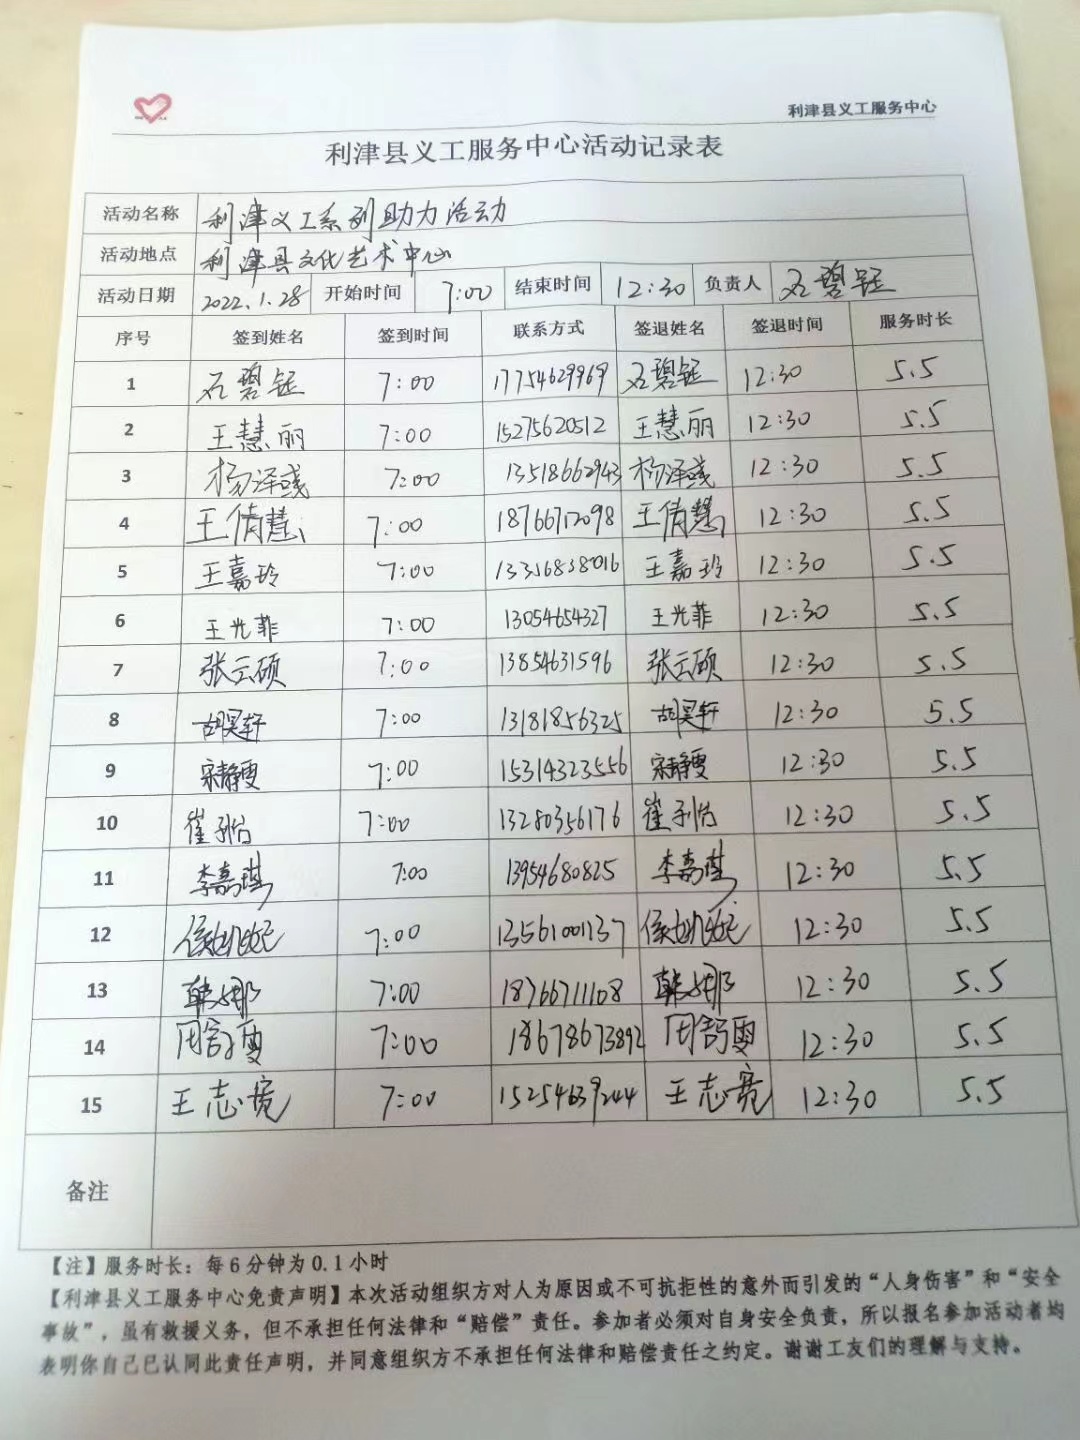 利津县义工服务中心
利津县义工服务中心活动记录表
活动名称 利津义工系列助力活动
活动地点 利津县文化艺术中心
活动日期 2022.1.28 开始时间 7:00 结束时间 12:30 负责人 石碧钰
序号 签到姓名 签到时间 联系方式 签退姓名 签退时间 服务时长
1 石碧钰 7:00 17754629969 石碧钰 12:30 5.5
2 王慧丽 7:00 15275620512 王慧丽 12:30 5.5
3 杨泽彧 7:00 13518662943 杨泽彧 12:30 5.5
4 王倩慧 7:00 18766712098 王倩慧 12:30 5.5
5 王嘉玲 7:00 13356838016 王嘉玲 12:30 5.5
6 王光菲 7:00 13054654327 王光菲 12:30 5.5
7 张云硕 7:00 13854631596 张云硕 12:30 5.5
8 胡昊轩 7:00 13181856325 胡昊轩 12:30 5.5
9 宋静雯 7:00 15314323556 宋静雯 12:30 5.5
10 崔子怡 7:00 13280356176 崔子怡 12:30 5.5
11 李嘉琪 7:00 13954680825 李嘉琪 12:30 5.5
12 7:00 13561001137 12:30 5.5
13 韩娜 7:00 18766711108 韩娜 12:30 5.5
14 周舒雯 7:00 18678673892 周舒雯 12:30 5.5
15 王志亮 7:00 15254639244 王志亮 12:30 5.5
备注
【注】服务时长：每6分钟为0.1小时
【利津县义工服务中心免责声明】本次活动组织方对人为原因或不可抗拒性的意外而引发的“人身伤害”和“安全
事故”，虽有救援义务，但不承担任何法律和“赔偿”责任。参加者必须对自身安全负责，所以报名参加活动者均
表明你自己已认同此责任声明，并同意组织方不承担任何法律和赔偿责任之约定。谢谢工友们的理解与支持。